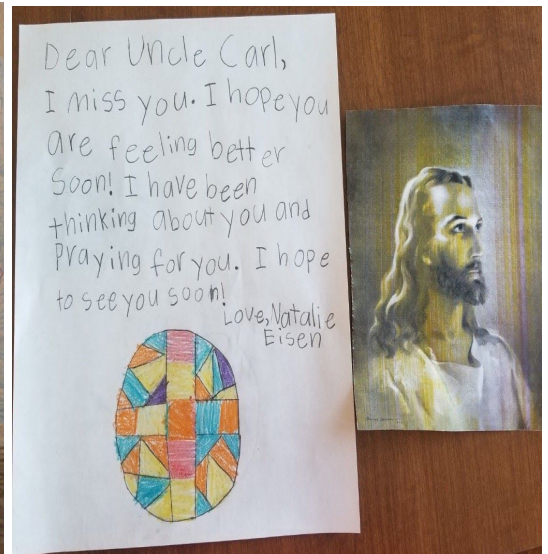 Dear Uncle Carl,
I miss you. I hope you
are feeling better
Soon! I have been
thinking about you and
Praying for you. I hope
to see you soon!
Love, Natalie
Eisen